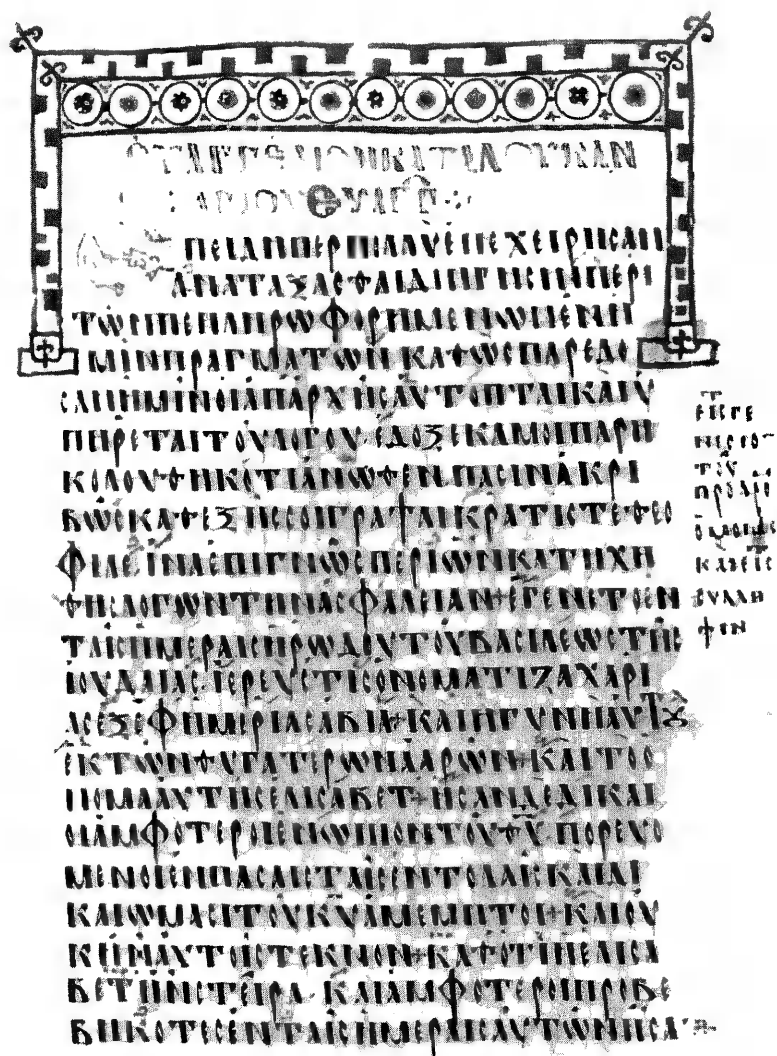 ΕΥΑΓΓΕΛΙΟΝΚΑΤΑΛΟΥΚΑΝ
ΠΕΙΔΗΠΕΡΠΟΛΛΟΙΕΠΕΧΕΙΡΗCΑΝ
ΑΝΑΤΑΞΑCΘΑΙΔΙΗΓΗCΙΝΠΕΡΙ
ΤΩΝΠΕΠΛΗΡΩΦΟΡΗΜΕΝΩΝΕΝΗ
ΜΙΝΠΡΑΓΜΑΤΩΝΚΑΘΩCΠΑΡΕΔΟ
CΑΝΗΜΙΝΟΙΑΠΑΡΧΗCΑΥΤΟΠΤΑΙΚΑΙΥ
ΠΗΡΕΤΑΙΤΟΥΛΟΓΟΥ·ΕΔΟΞΕΚΑΜΟΙΠΑΡΗ
ΚΟΛΟΥΘΗΚΟΤΙΑΝΩΘΕΝΠΑCΙΝΑΚΡΙ
ΒΩCΚΑΘΕΞΗCCΟΙΓΡΑΨΑΙΚΡΑΤΙCΤΕΘΕΟ
ΦΙΛΕΙΝΑΕΠΙΓΝΩCΠΕΡΙΩΝΚΑΤΗΧΗ
ΘΗCΛΟΓΩΝΤΗΝΑCΦΑΛΕΙΑΝ+ΕΓΕΝΕΤΟΕΝ
ΤΑΙCΗΜΕΡΑΙCΗΡΩΔΟΥΤΟΥΒΑCΙΛΕΩCΤΗC
ΙΟΥΔΑΙΑC·ΙΕΡΕΥCΤΙCΟΝΟΜΑΤΙΖΑΧΑΡΙ
ΑCΕΞΕΦΗΜΕΡΙΑCΑΒΙΑ+ΚΑΙΗΓΥΝΗΑΥΤΟΥ
ΕΚΤΩΝΘΥΓΑΤΕΡΩΝΑΑΡΩΝ+ΚΑΙΤΟΟ
ΝΟΜΑΑΥΤΗCΕΛΙCΑΒΕΤ+ΗCΑΝΔΕΔΙΚΑΙ
ΟΙΑΜΦΟΤΕΡΟΙΕΝΩΠΙΟΝΤΟΥΘΥ·ΠΟΡΕΥΟ
ΜΕΝΟΙΕΝΠΑCΑΙCΤΑΙCΕΝΤΟΛΑΙCΚΑΙΔΙ
ΚΑΙΩΜΑCΙΤΟΥΚΥΑΜΕΜΠΤΟΙ+ΚΑΙΟΥ
ΚΗΝΑΥΤΟΙCΤΕΚΝΟΝ+ΚΑΘΟΤΙΗΕΛΙCΑ
ΒΕΤΗΝCΤΕΙΡΑ·ΚΑΙΑΜΦΟΤΕΡΟΙΠΡΟΒΕ
ΒΗΚΟΤΕCΕΝΤΑΙCΗΜΕΡΑΙCΑΥΤΩΝΗCΑ
ΤΟΥ
ΠΡΟΔΡΟ
ΟΜΟΙΩC
ΚΑΙΕΙC
CΥΛΛΗ
ΨΙΝ